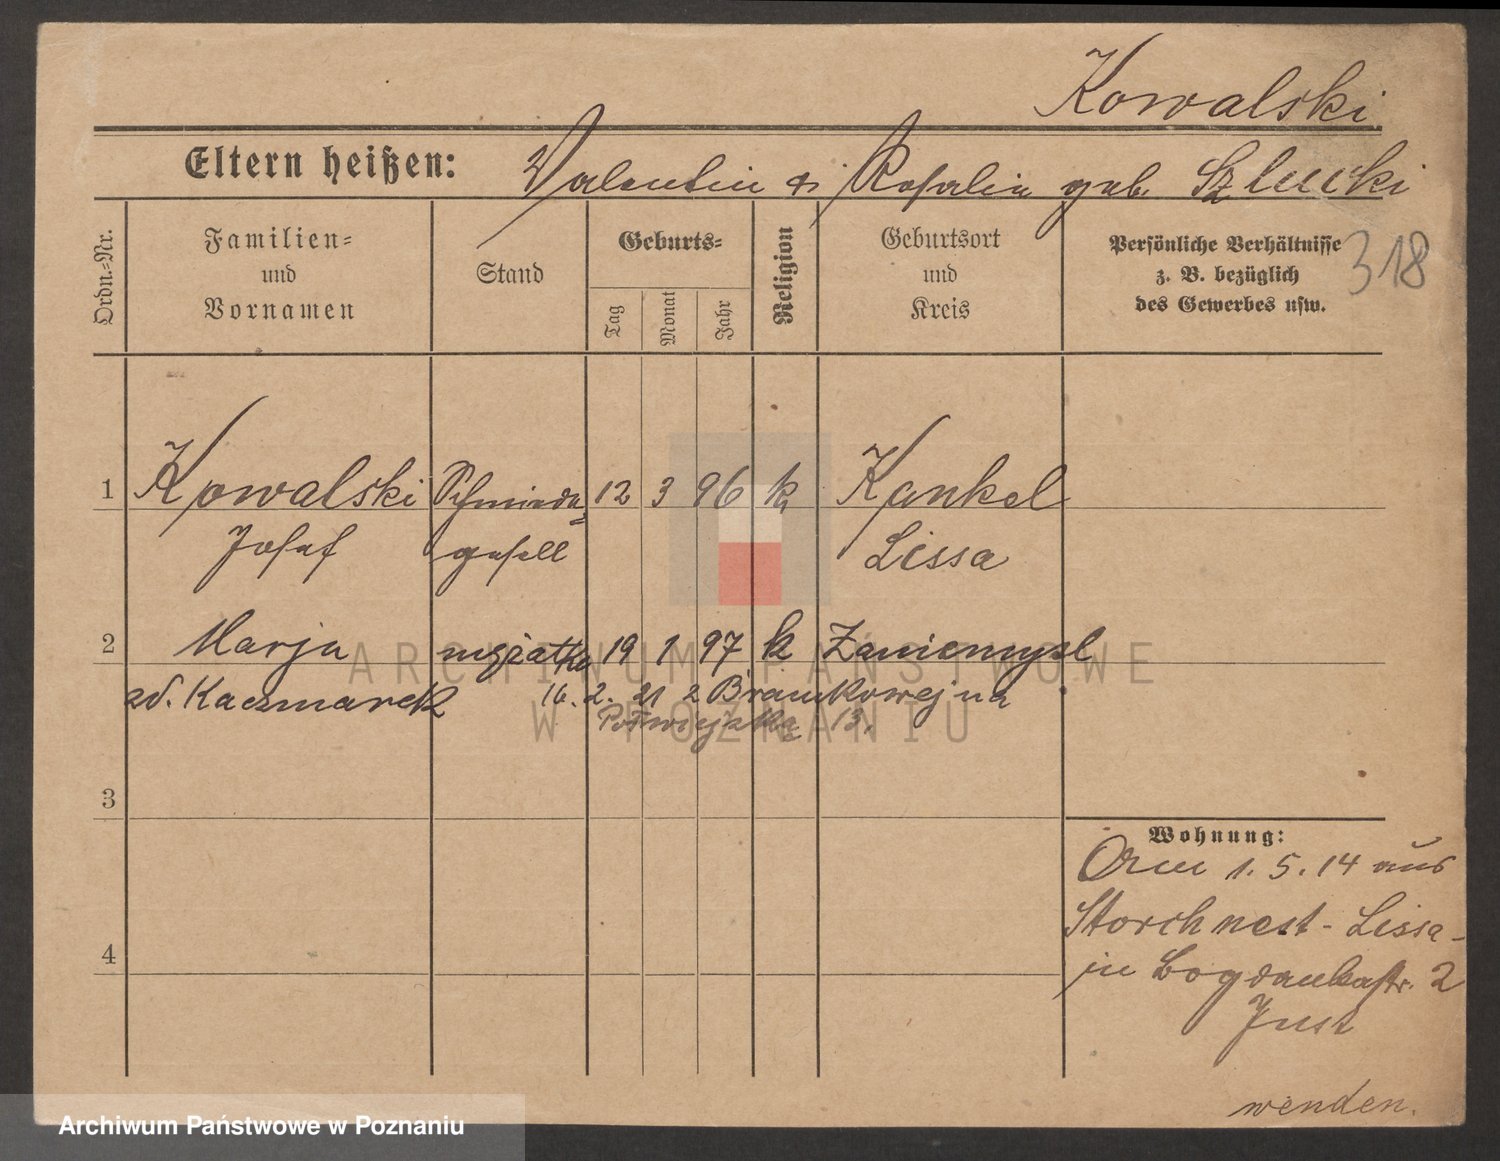 Kowalski
Eltern heißen: Valentin & Rosalie geb. Szlucki
Ordn.=Nr.
Familien=
und
Vornamen
Stand
Geburts=
Tag
Monat
Jahr
Religion
Geburtsort
und
Kreis
Persönliche Verhältnisse
z. B. bezüglich
des Gewerbes usw.
318
1 Kowalski Schmiede= 12 3 96 k Kankel
Josef gesell Lissa
2 Marja mężatka 19 1 97 k Zaniemyśl
zd. Kaczmarek 16. 2. 21 z Bramkowej na
Półwiejską 13.
3
4
Wohnung:
1.5.14 aus
Storchnest - Lissa -
in Bogdankastr. 2
Just
wenden.
ARCHIWUM PAŃSTWOWE
W POZNANIU
Archiwum Państwowe w Poznaniu